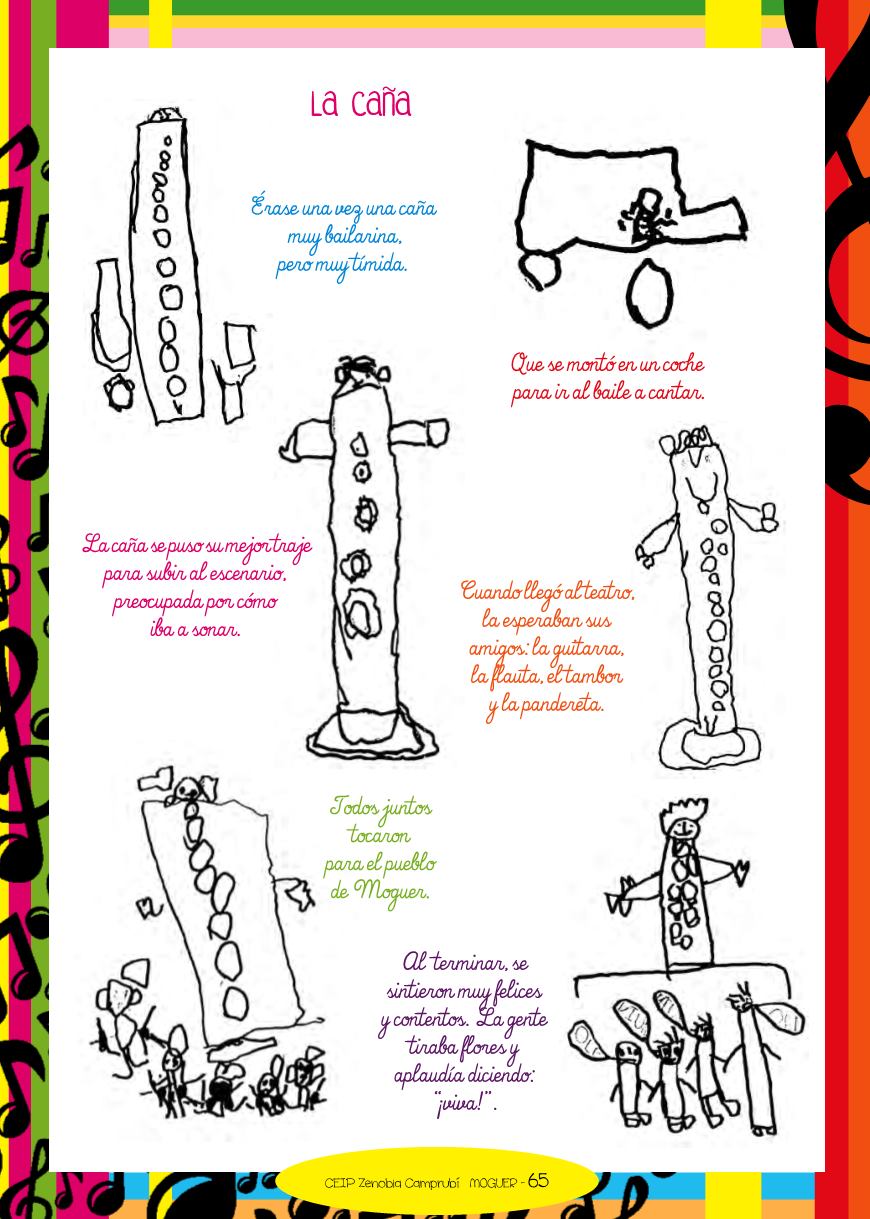 La caña
Érase una vez una caña
muy bailarina,
pero muy tímida.
Que se montó en un coche
para ir al baile a cantar.
La caña se puso su mejor traje
para subir al escenario,
preocupada por cómo
iba a sonar.
Cuando llegó al teatro,
la esperaban sus
amigos: la guitarra,
la flauta, el tambor
y la pandereta.
Todos juntos
tocaron
para el pueblo
de Moguer.
Al terminar, se
sintieron muy felices
y contentos. La gente
tiraba flores y
aplaudía diciendo:
“¡viva!”.
CEIP Zenobia Camprubí MOGUER - 65